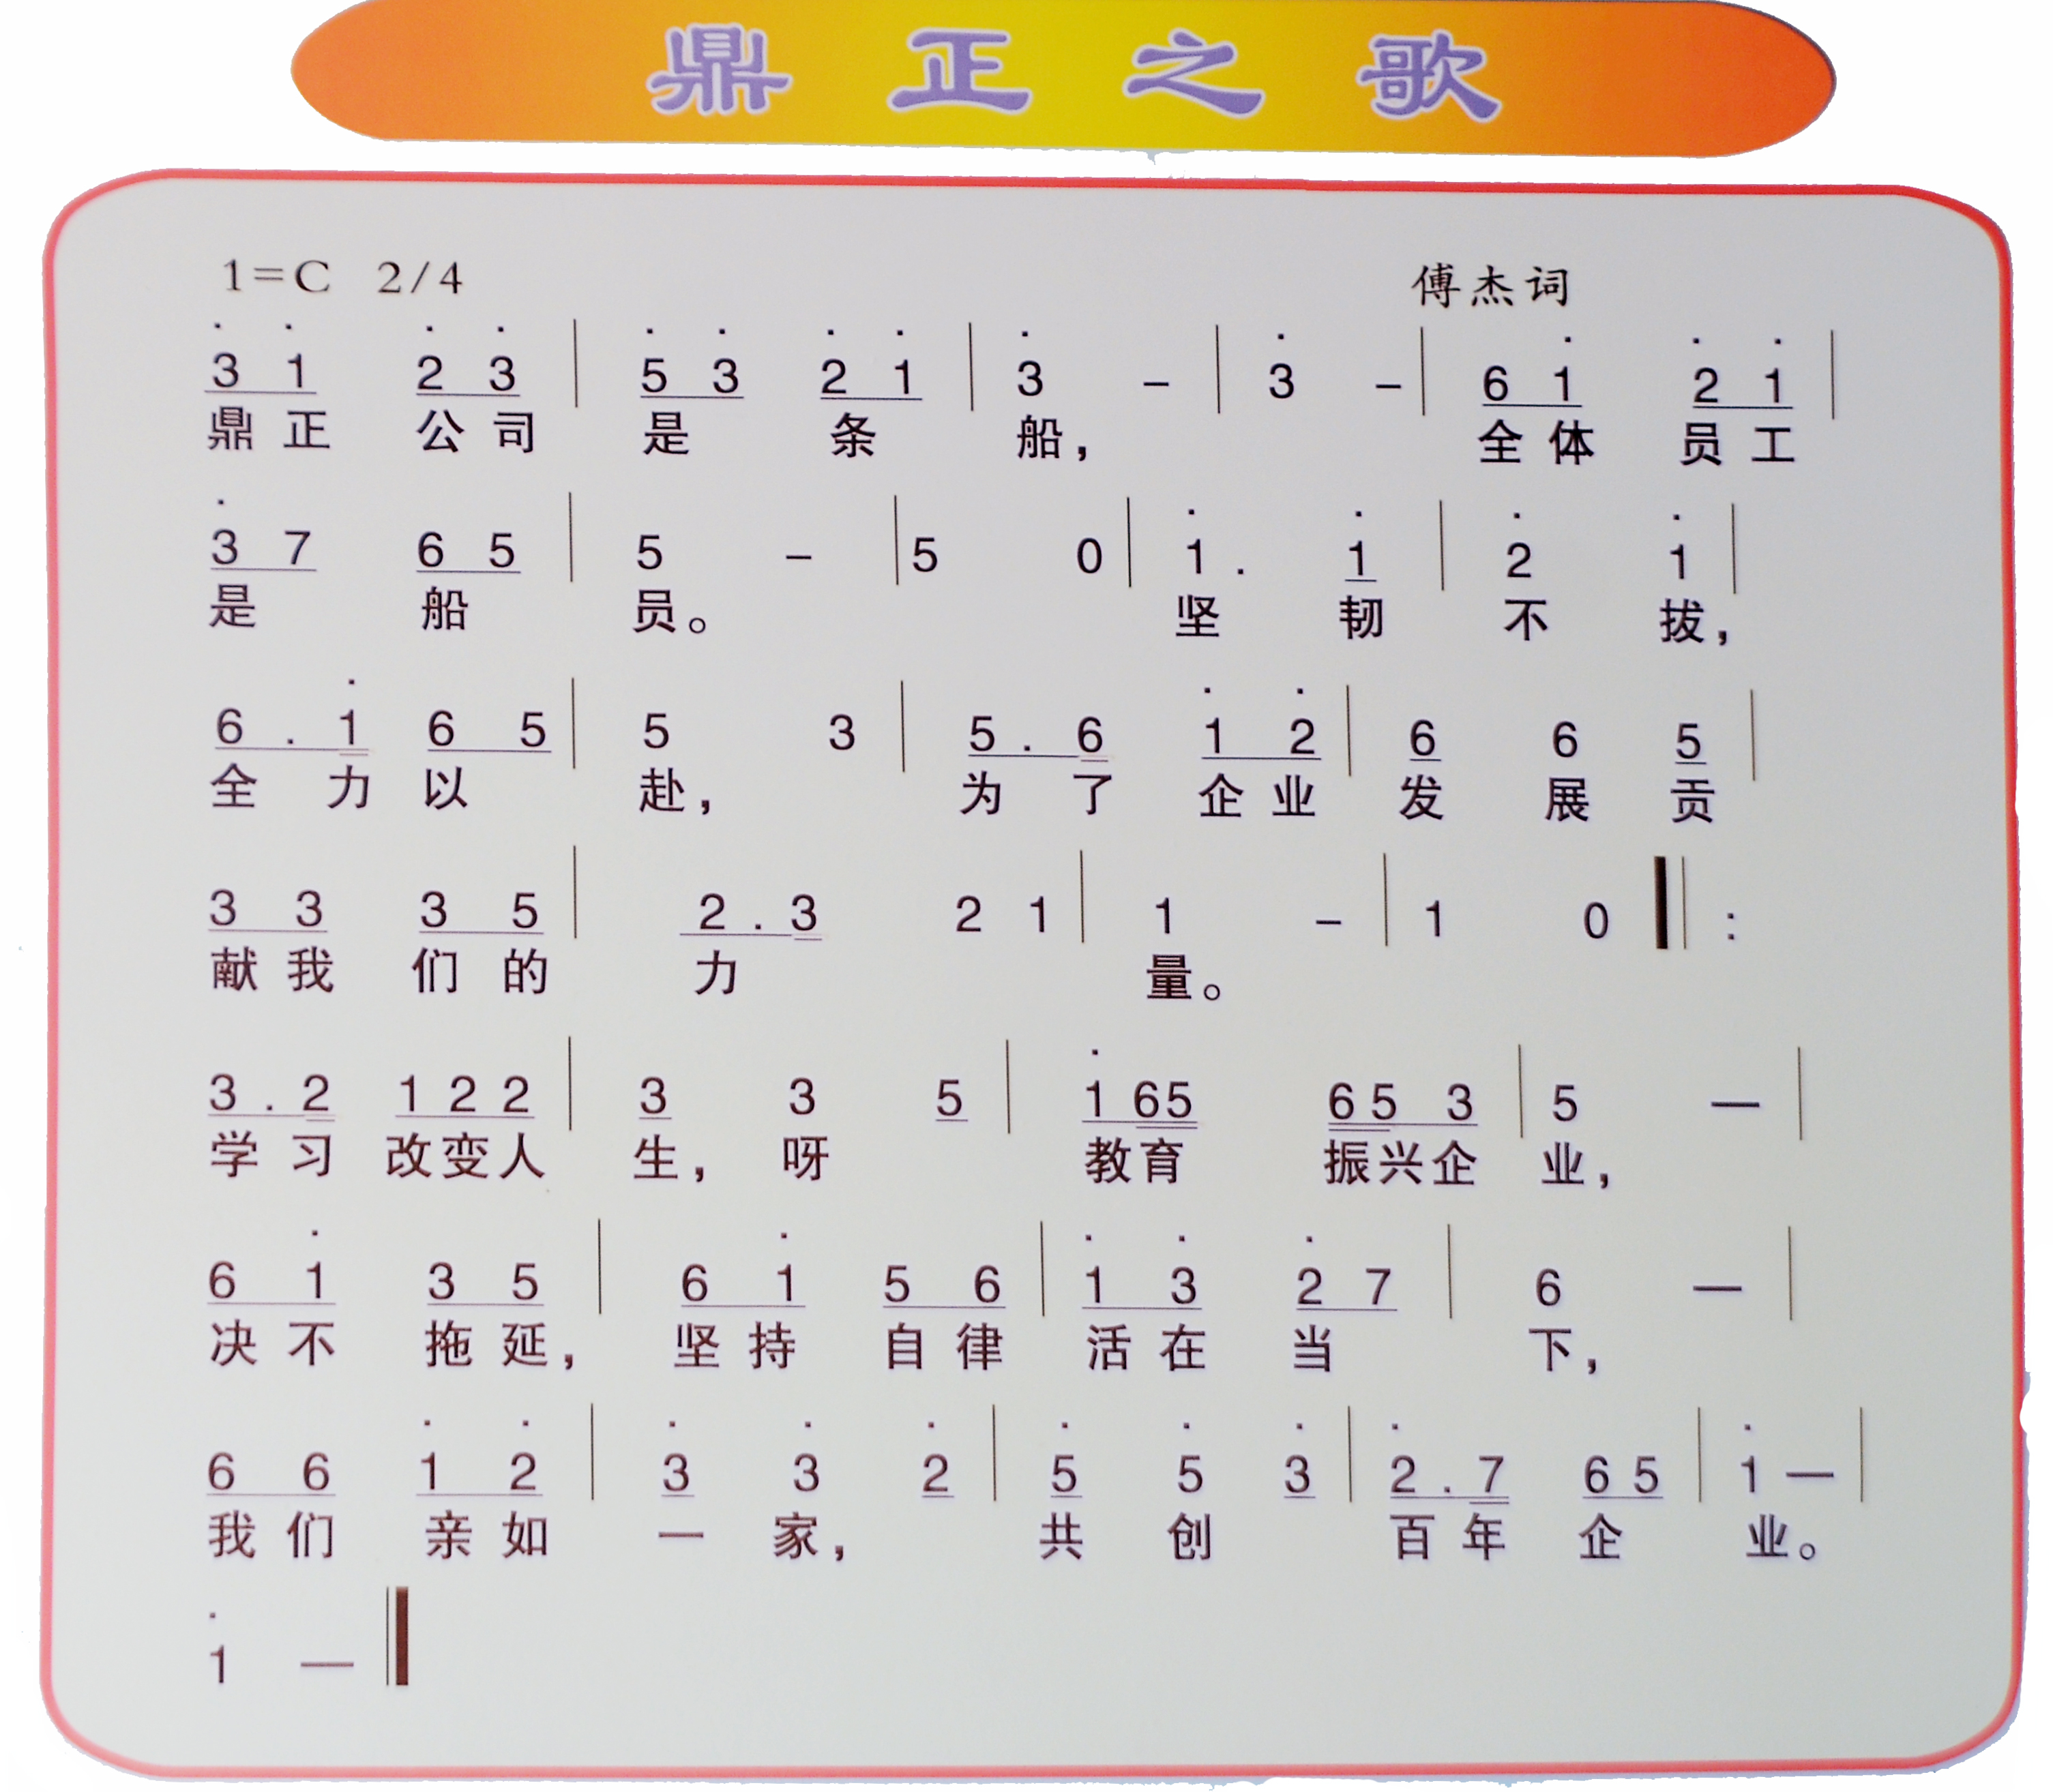 鼎正之歌
1=C 2/4 傅杰词
3̇ 1̇ 2̇ 3̇ | 5̇ 3̇ 2̇ 1̇ | 3̇ – | 3̇ – | 6 1̇ 2̇ 1̇ |
鼎正 公司 是 条 船， 全体 员工
3̇ 7 6 5 | 5 – | 5 0 | 1̇ . 1̇ | 2̇ 1̇ |
是 船 员。 坚 韧 不 拔，
6 . 1̇ 6 5 | 5 3 | 5 . 6 1̇ 2̇ | 6 6 5 |
全 力 以 赴， 为 了 企业 发 展 贡
3 3 3 5 | 2 . 3 2 1 | 1 – | 1 0 ‖ :
献我 们的 力 量。
3 . 2 1 2 2 | 3 3 5 | 1̇ 6 5 6 5 3 | 5 — |
学习 改变人 生， 呀 教育 振兴企 业，
6 1̇ 3 5 | 6 1̇ 5 6 | 1̇ 3̇ 2̇ 7 | 6 — |
决不 拖延， 坚持 自律 活在 当 下，
6 6 1̇ 2̇ | 3̇ 3̇ 2̇ | 5̇ 5̇ 3̇ | 2̇ . 7 6 5 | 1̇ — |
我们 亲如 一 家， 共 创 百年 企 业。
1̇ — ‖